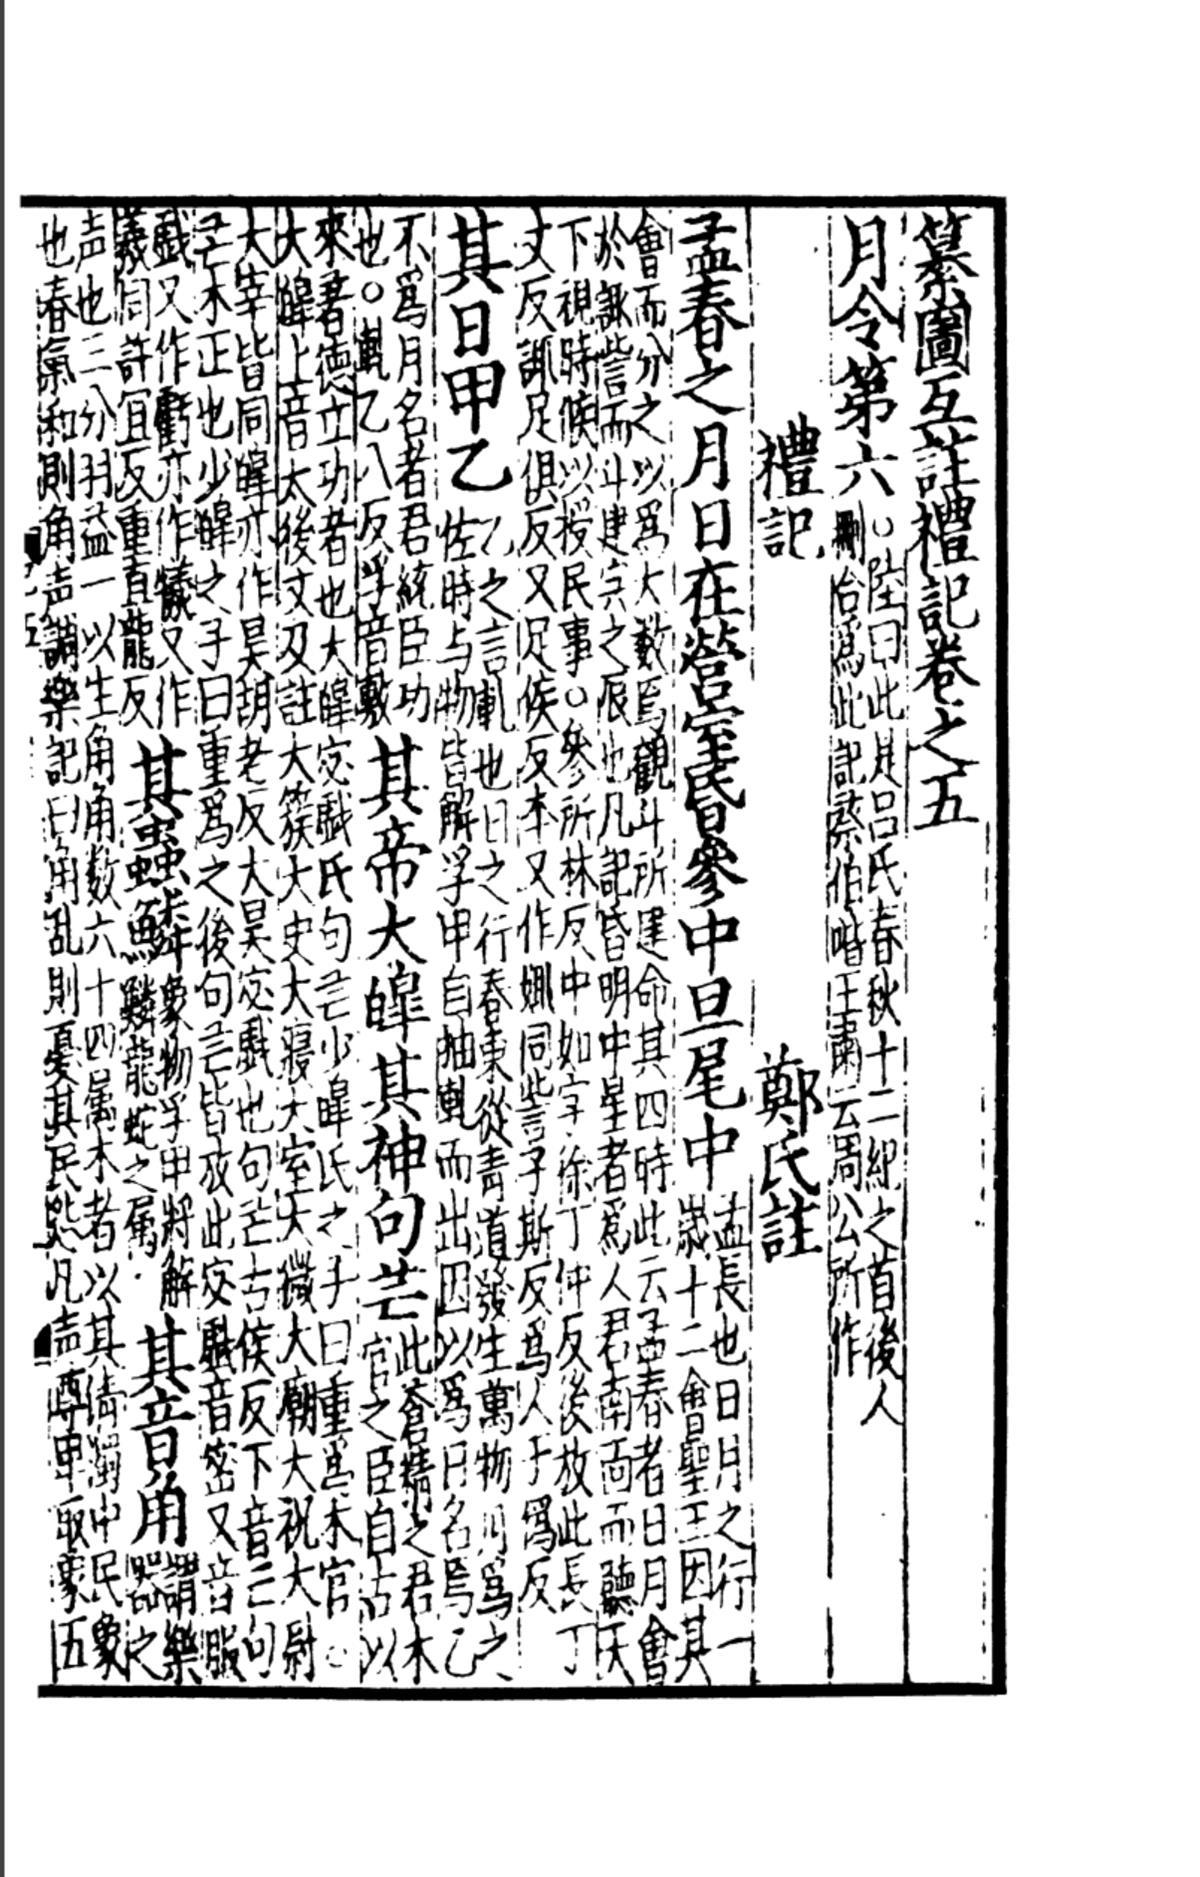 纂圖互註禮記卷之五
月令第六
○陸曰此是呂氏春秋十二紀之首後人
刪合爲此記蔡伯喈王肅云周公所作
禮記 鄭氏註
孟春之月日在營室昏參中旦尾中
孟長也日月之行一
歲十二會聖王因其
會而分之以爲大數焉觀斗所建命其四時此云孟春者日月會
於諏訾而斗建寅之辰也凡記昏明中星者爲人君南面而聽天
下視時候以授民事○參所林反中如字徐丁仲反後放此長丁
丈反諏足俱反又足侯反本又作娵同訾子斯反爲人于僞反
其日甲乙
乙之言軋也日之行春東從青道發生萬物月爲之
佐時与物皆解孚甲自抽軋而出因以爲日名焉乙
不爲月名者君統臣功
也○軋乙八反孚音敷
其帝大皥其神句芒
此蒼精之君木
官之臣自古以
來著德立功者也大皥宓戲氏句芒少皥氏之子曰重爲木官○
大皥上音太後文及註大簇大史大寢大室大微大廟大祝大尉
大宰皆同皥亦作昊胡老反大昊宓戲也句芒古侯反下音亡句
芒木正也少皥之子曰重爲之後句芒皆放此宓戲音密又音服
戲又作虧亦作犧又作
羲同許宜反重直龍反
其蟲鱗
象物孚甲將解
鱗龍蛇之属
其音角
謂樂
器之
声也三分羽益一以生角角数六十四属木者以其清濁中民象
也春氣和則角声調樂記曰角乱則憂其民怨凡声尊卑取象五